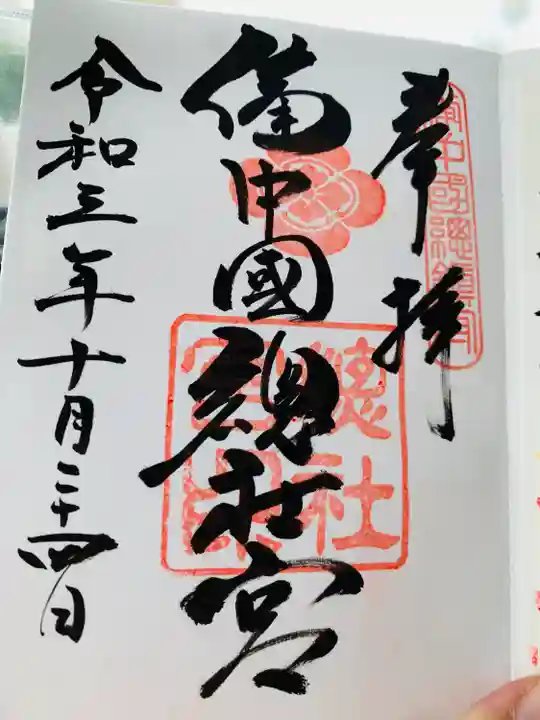 奉拝
備中國總社宮
令和三年十月二十四日
備中國總鎮守
總社
宮印